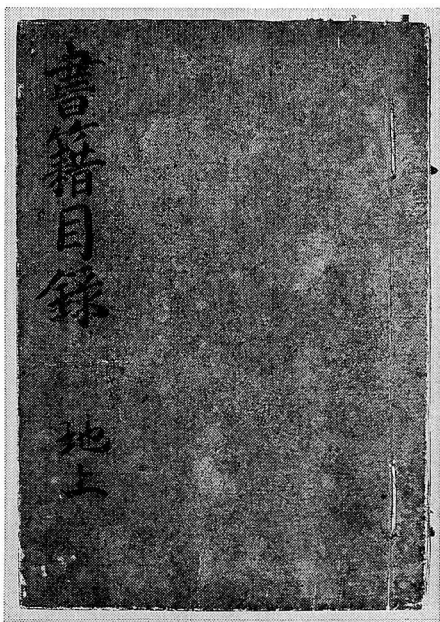 書籍目録 地上